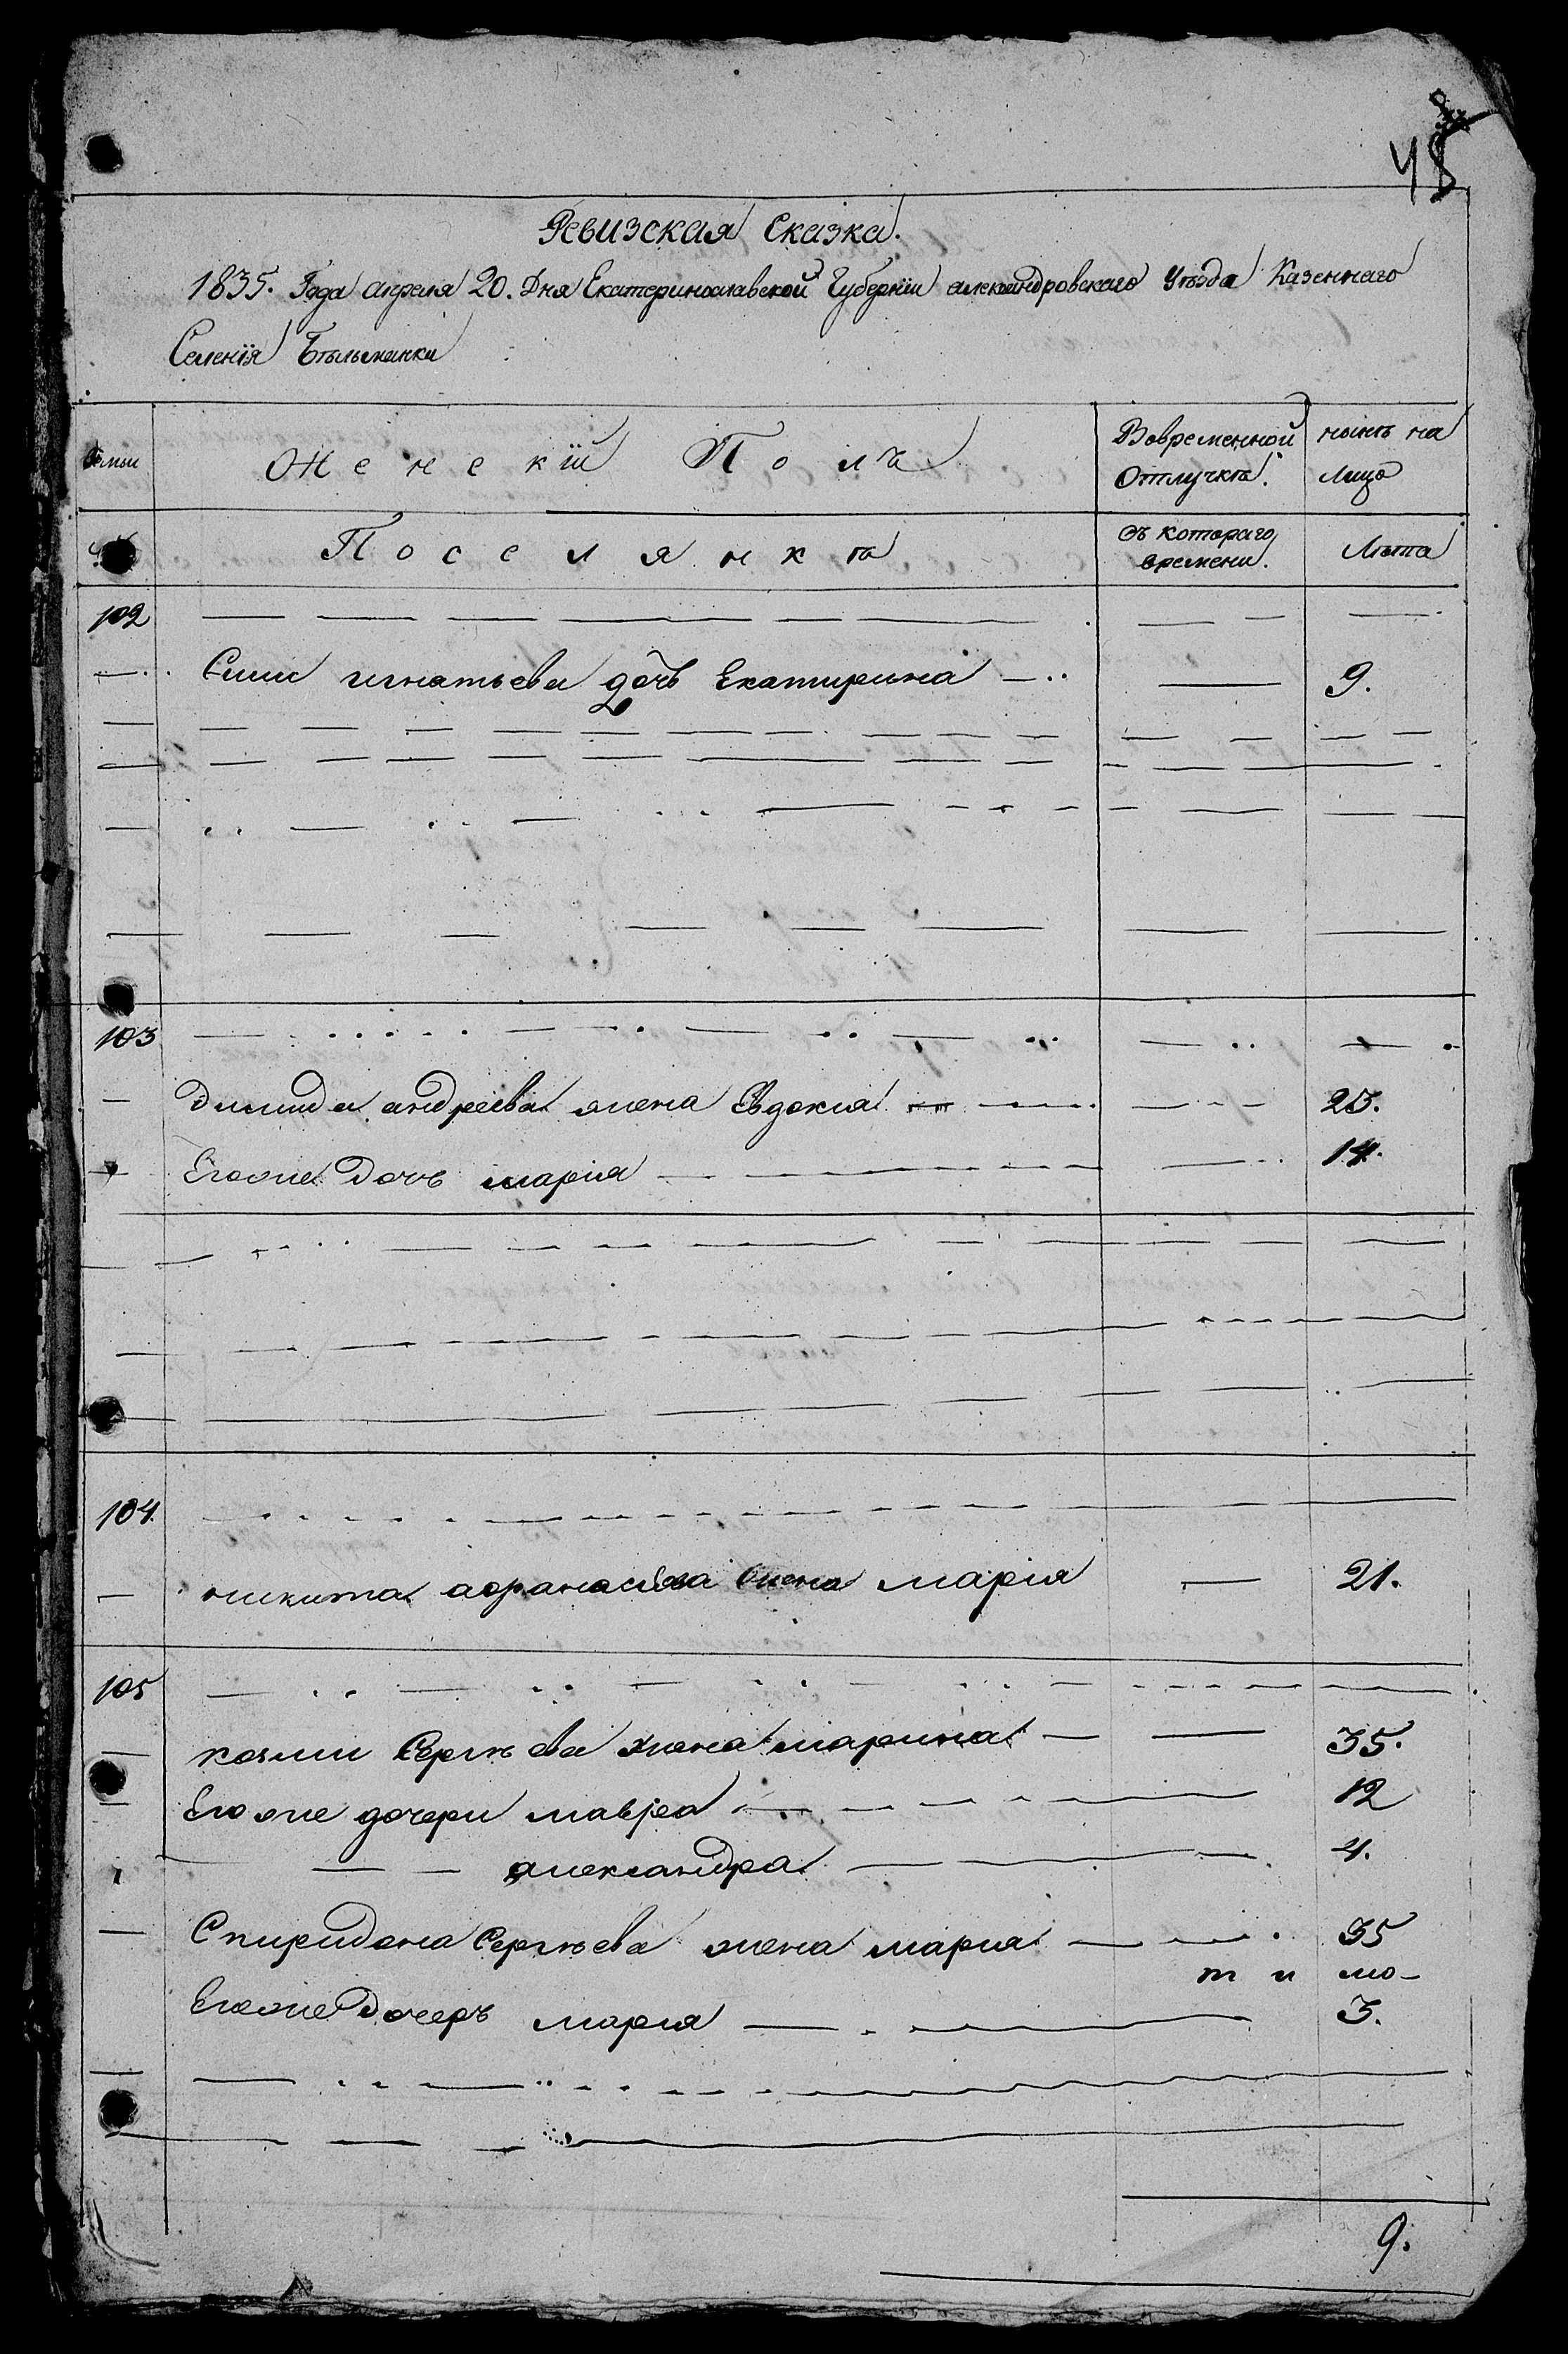 48
Ревизская Сказка.
1835. Года апреля 20. Дня Екатеринославской Губернїи александровскаго Уѣзда Казеннаго
Селенїя Бѣльманки
Семьи
Женскїй Полъ
Вовременной Отлучкѣ.
нынѣ на Лицо
Поселянкѣ
Съ котораго времени.
Лѣта
102
игнатьева дочь Екатирина 9.
103
андреева жена Евдокия 25.
Егоже Дочь мария 14.
104.
никита афанасьева жена мария 21.
105
козми Сергѣева жена марина 35.
Егоже дочери мавра 12
александра 4.
Спиридона Сергѣева жена мария 35
т и мо-
Егоже Дочерь мария 3.
9.